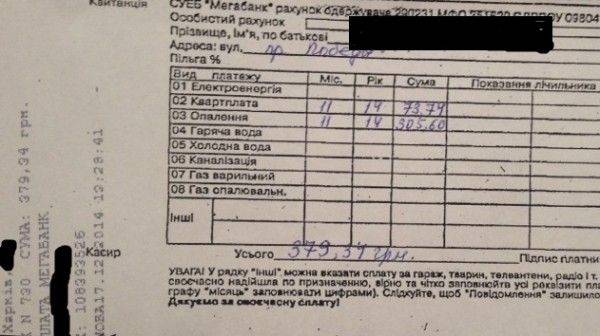 Квитанція
СУЕБ "Мегабанк" рахунок одержувача 290231 МФО 351629 09804
Особистий рахунок
Прізвище, ім'я, по батькові
Адреса: вул. пр. Победы
Пільга %
Вид платежу Міс. Рік Сума Показання лічильника
01 Електроенергія
02 Квартплата 11 14 73,74
03 Опалення 11 14 305,60
04 Гаряча вода
05 Холодна вода
06 Каналізація
07 Газ варильний
08 Газ опалювальн.
Інші
Касир Усього 379,34 грн. Підпис платни
УВАГА! У рядку "Інші" можна вказати сплату за гараж, тварин, телеантени, радіо і т.
своєчасно надійшла по призначенню, вірно та чітко заповнюйте усі реквізити пла
графу "місяць" заповнювати цифрами). Слідкуйте, щоб "Повідомлення" залишило
Дякуємо за своєчасну сплату!
Харків
N 730 СУМА: 379,34 грн.
ПЛАТА МЕГАБАНК
: 106393526
17.12.2014 13:28:41